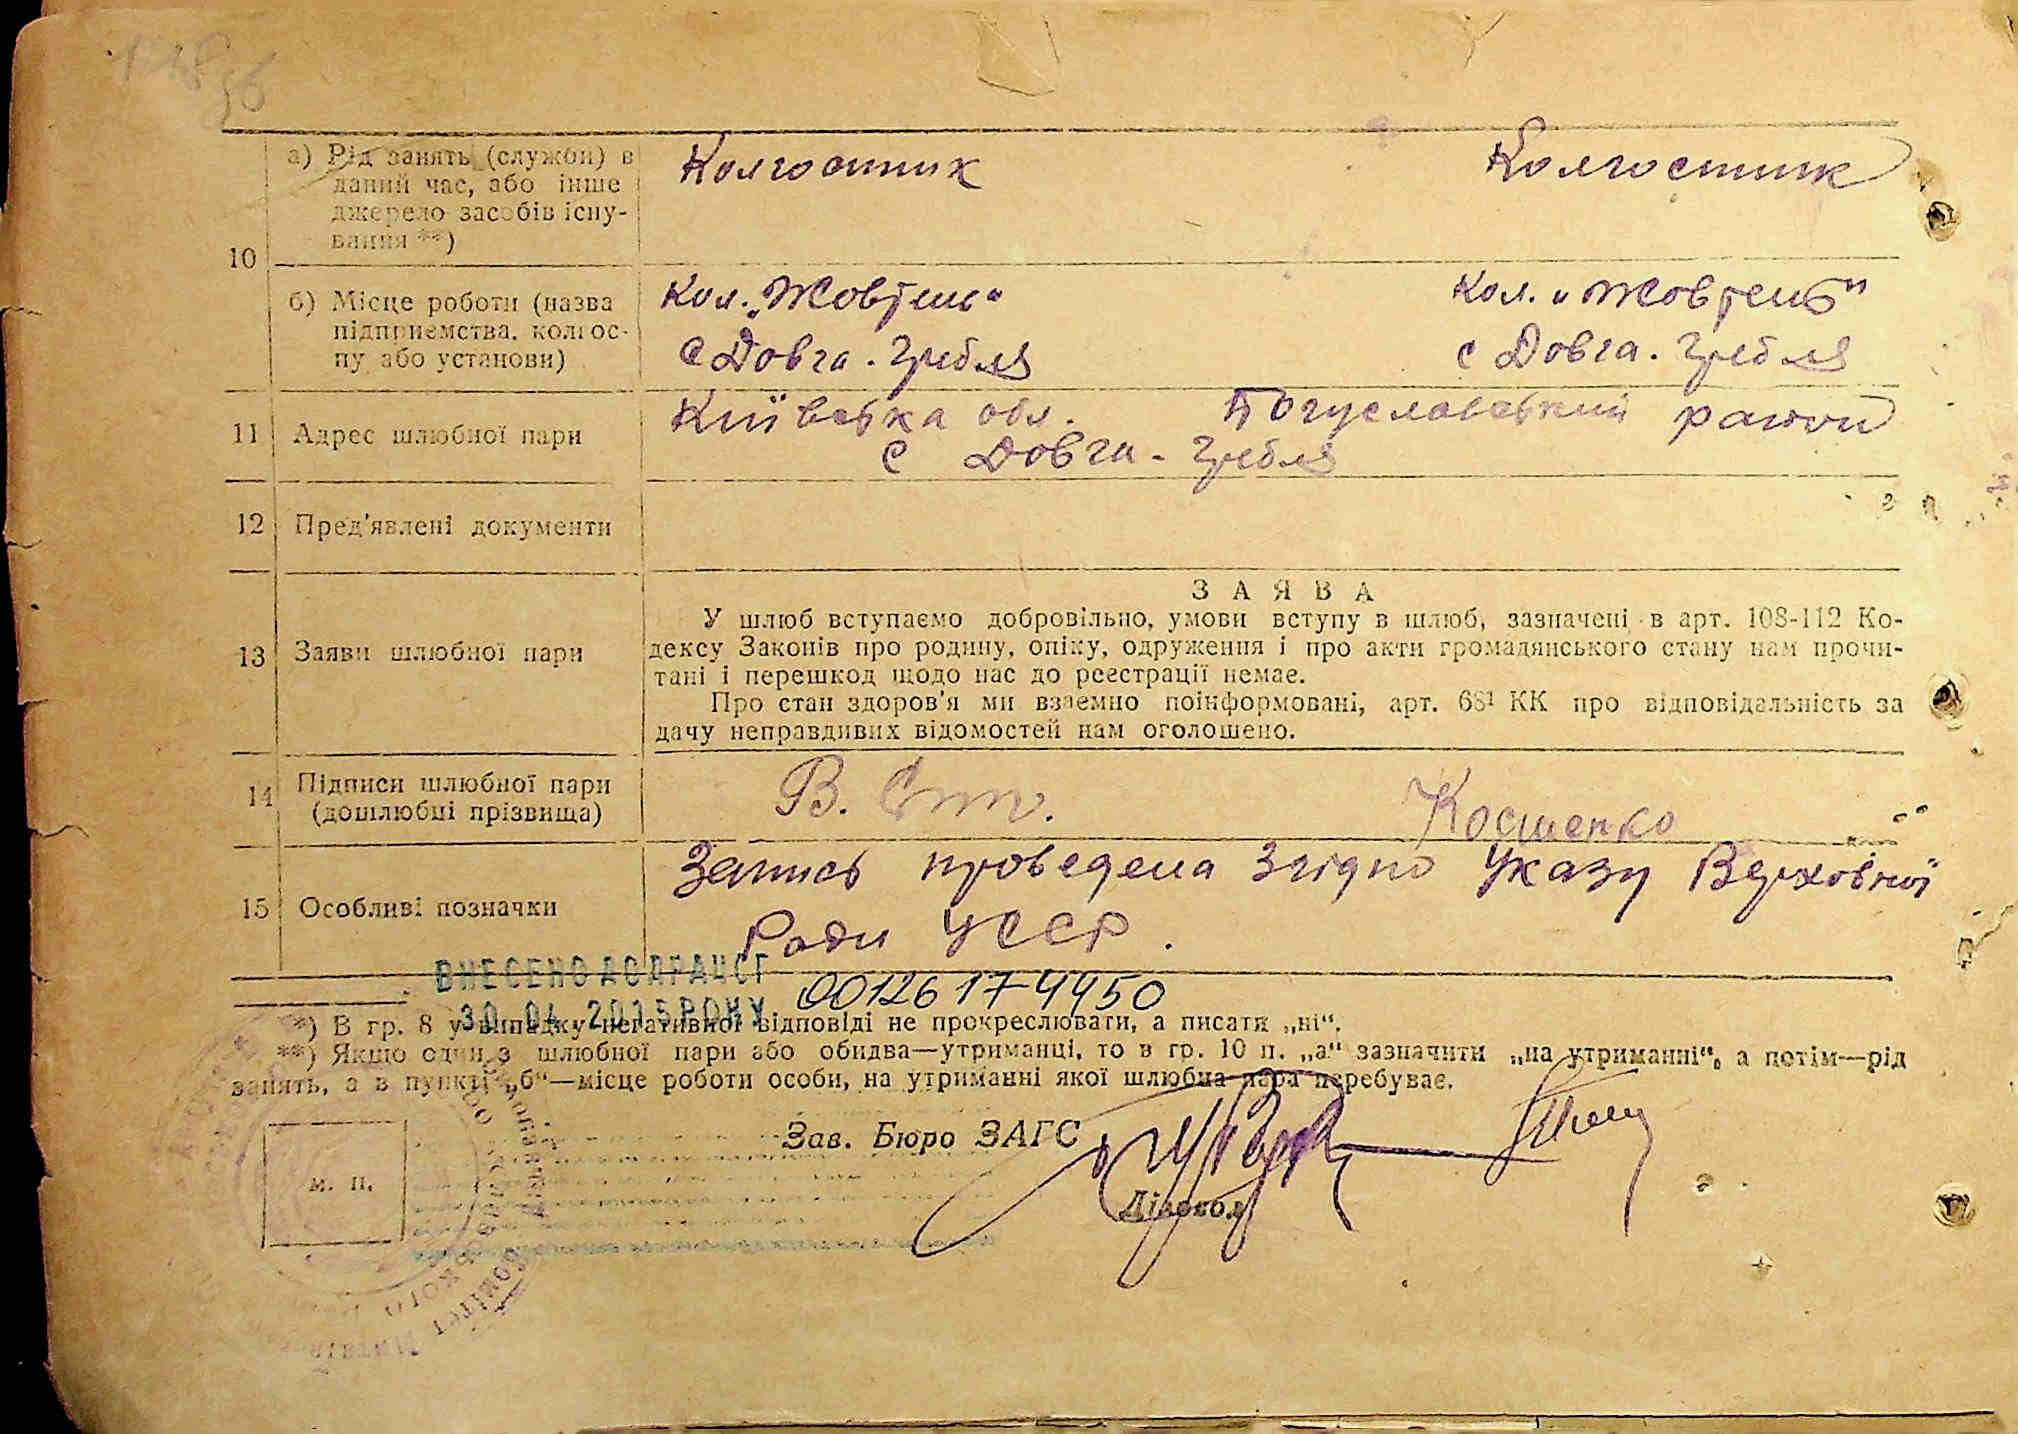 а) Рід занять (служби) в
даний час, або інше
джерело засобів існу-
вання **)
Колгоспник
Колгоспник
10
б) Місце роботи (назва
підприємства, колгос-
пу або установи)
Кол. „Жовтень"
Кол. „Жовтень"
с Довга-Гребля
с Довга-Гребля
11 Адрес шлюбної пари
Київська обл. Богуславський район
с Довга-Гребля
12 Пред'явлені документи
ЗАЯВА
13 Заяви шлюбної пари
У шлюб вступаємо добровільно, умови вступу в шлюб, зазначені в арт. 108-112 Ко-
дексу Законів про родину, опіку, одруження і про акти громадянського стану нам прочи-
тані і перешкод щодо нас до реєстрації немає.
Про стан здоров'я ми взаємно поінформовані, арт. 68¹ КК про відповідальність за
дачу неправдивих відомостей нам оголошено.
14 Підписи шлюбної пари
(дошлюбні прізвища)
В.
Косшенко
15 Особливі позначки
Запись проведена Згідно Указу Верховної
Ради УССР.
ВНЕСЕНО ДО ДРАЦСГ
30 04 2015 РОКУ
00126174450
*) В гр. 8 у випадку негативної відповіді не прокреслювати, а писати „ні".
**) Якщо один з шлюбної пари або обидва—утриманці, то в гр. 10 п. „а" зазначити „на утриманні", а потім—рід
занять, а в пункті „б"—місце роботи особи, на утриманні якої шлюбна пара перебуває.
Зав. Бюро ЗАГС
м. п.
Діловод